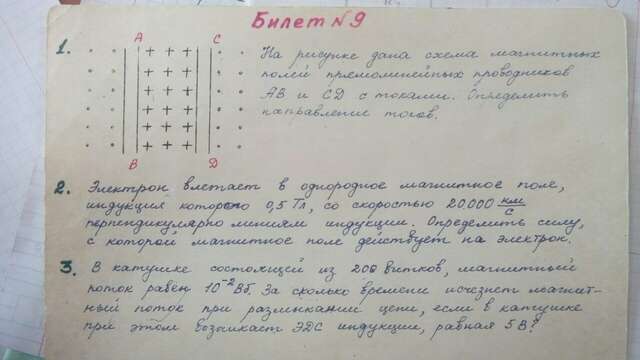 Билет №9
1. На рисунке дана схема магнитных
полей прямолинейных проводников
АВ и CD с токами. Определить
направление токов.
A C
B D
2. Электрон влетает в однородное магнитное поле,
индукция которого 0,5 Тл, со скоростью 20 000 км/с
перпендикулярно линиям индукции. Определить силу,
с которой магнитное поле действует на электрон.
3. В катушке состоящей из 200 витков, магнитный
поток равен 10⁻² Вб. За сколько времени исчезнет магнит-
ный поток при размыкании цепи, если в катушке
при этом возникает ЭДС индукции, равная 5 В?